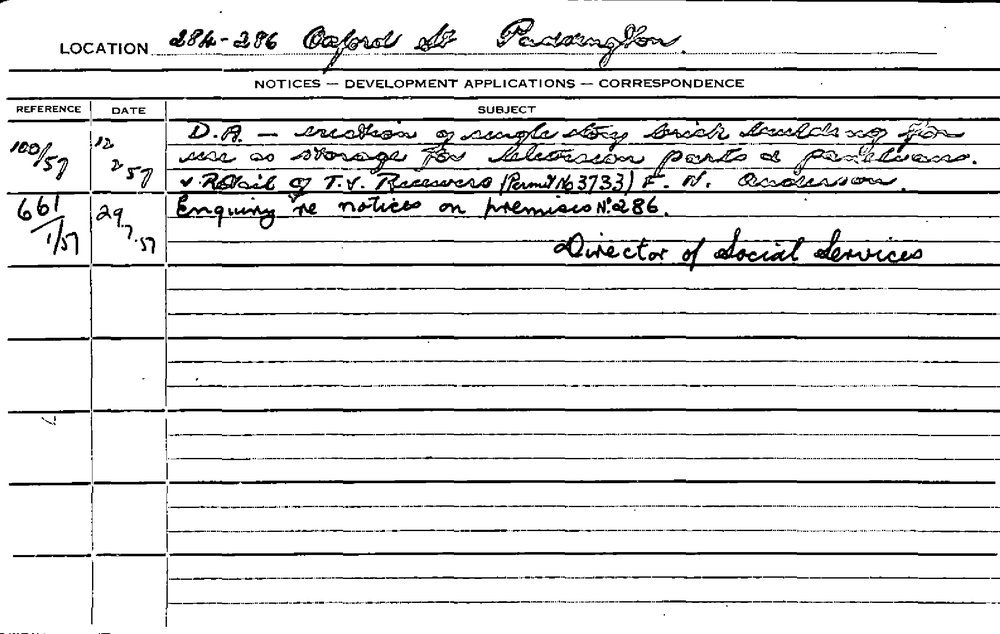 LOCATION 284-286 Oxford St Paddington.
NOTICES — DEVELOPMENT APPLICATIONS — CORRESPONDENCE
REFERENCE DATE SUBJECT
100/57 12 2 57 D.A. — erection of single story brick building for
use as storage for television parts &
& Retail of T.V. Receivers (Permit No 3733) F. N. Anderson.
661/1/57 29.7.57 Enquiry re notices on premises No. 286.
Director of Social Services